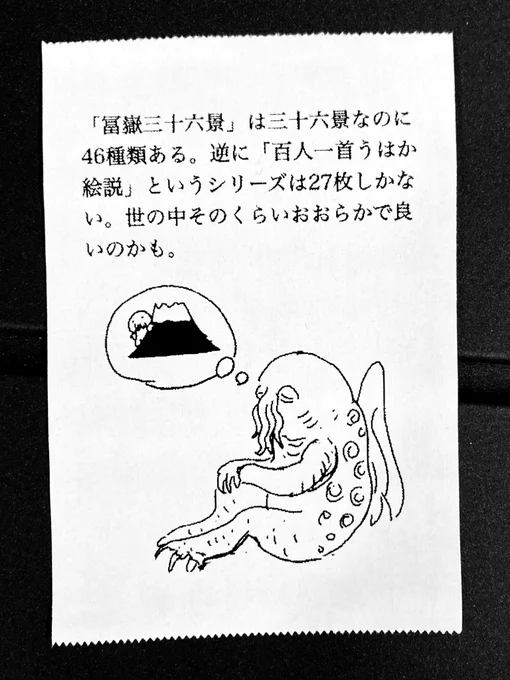 「冨嶽三十六景」は三十六景なのに
46種類ある。逆に「百人一首うはか
絵説」というシリーズは27枚しかな
い。世の中そのくらいおおらかで良
いのかも。